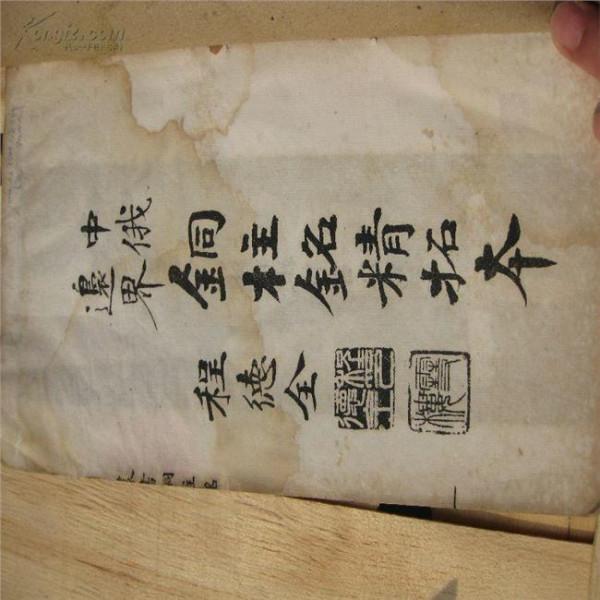 Kongfz.com
中俄
邊界
銅柱銘精拓本
程德全